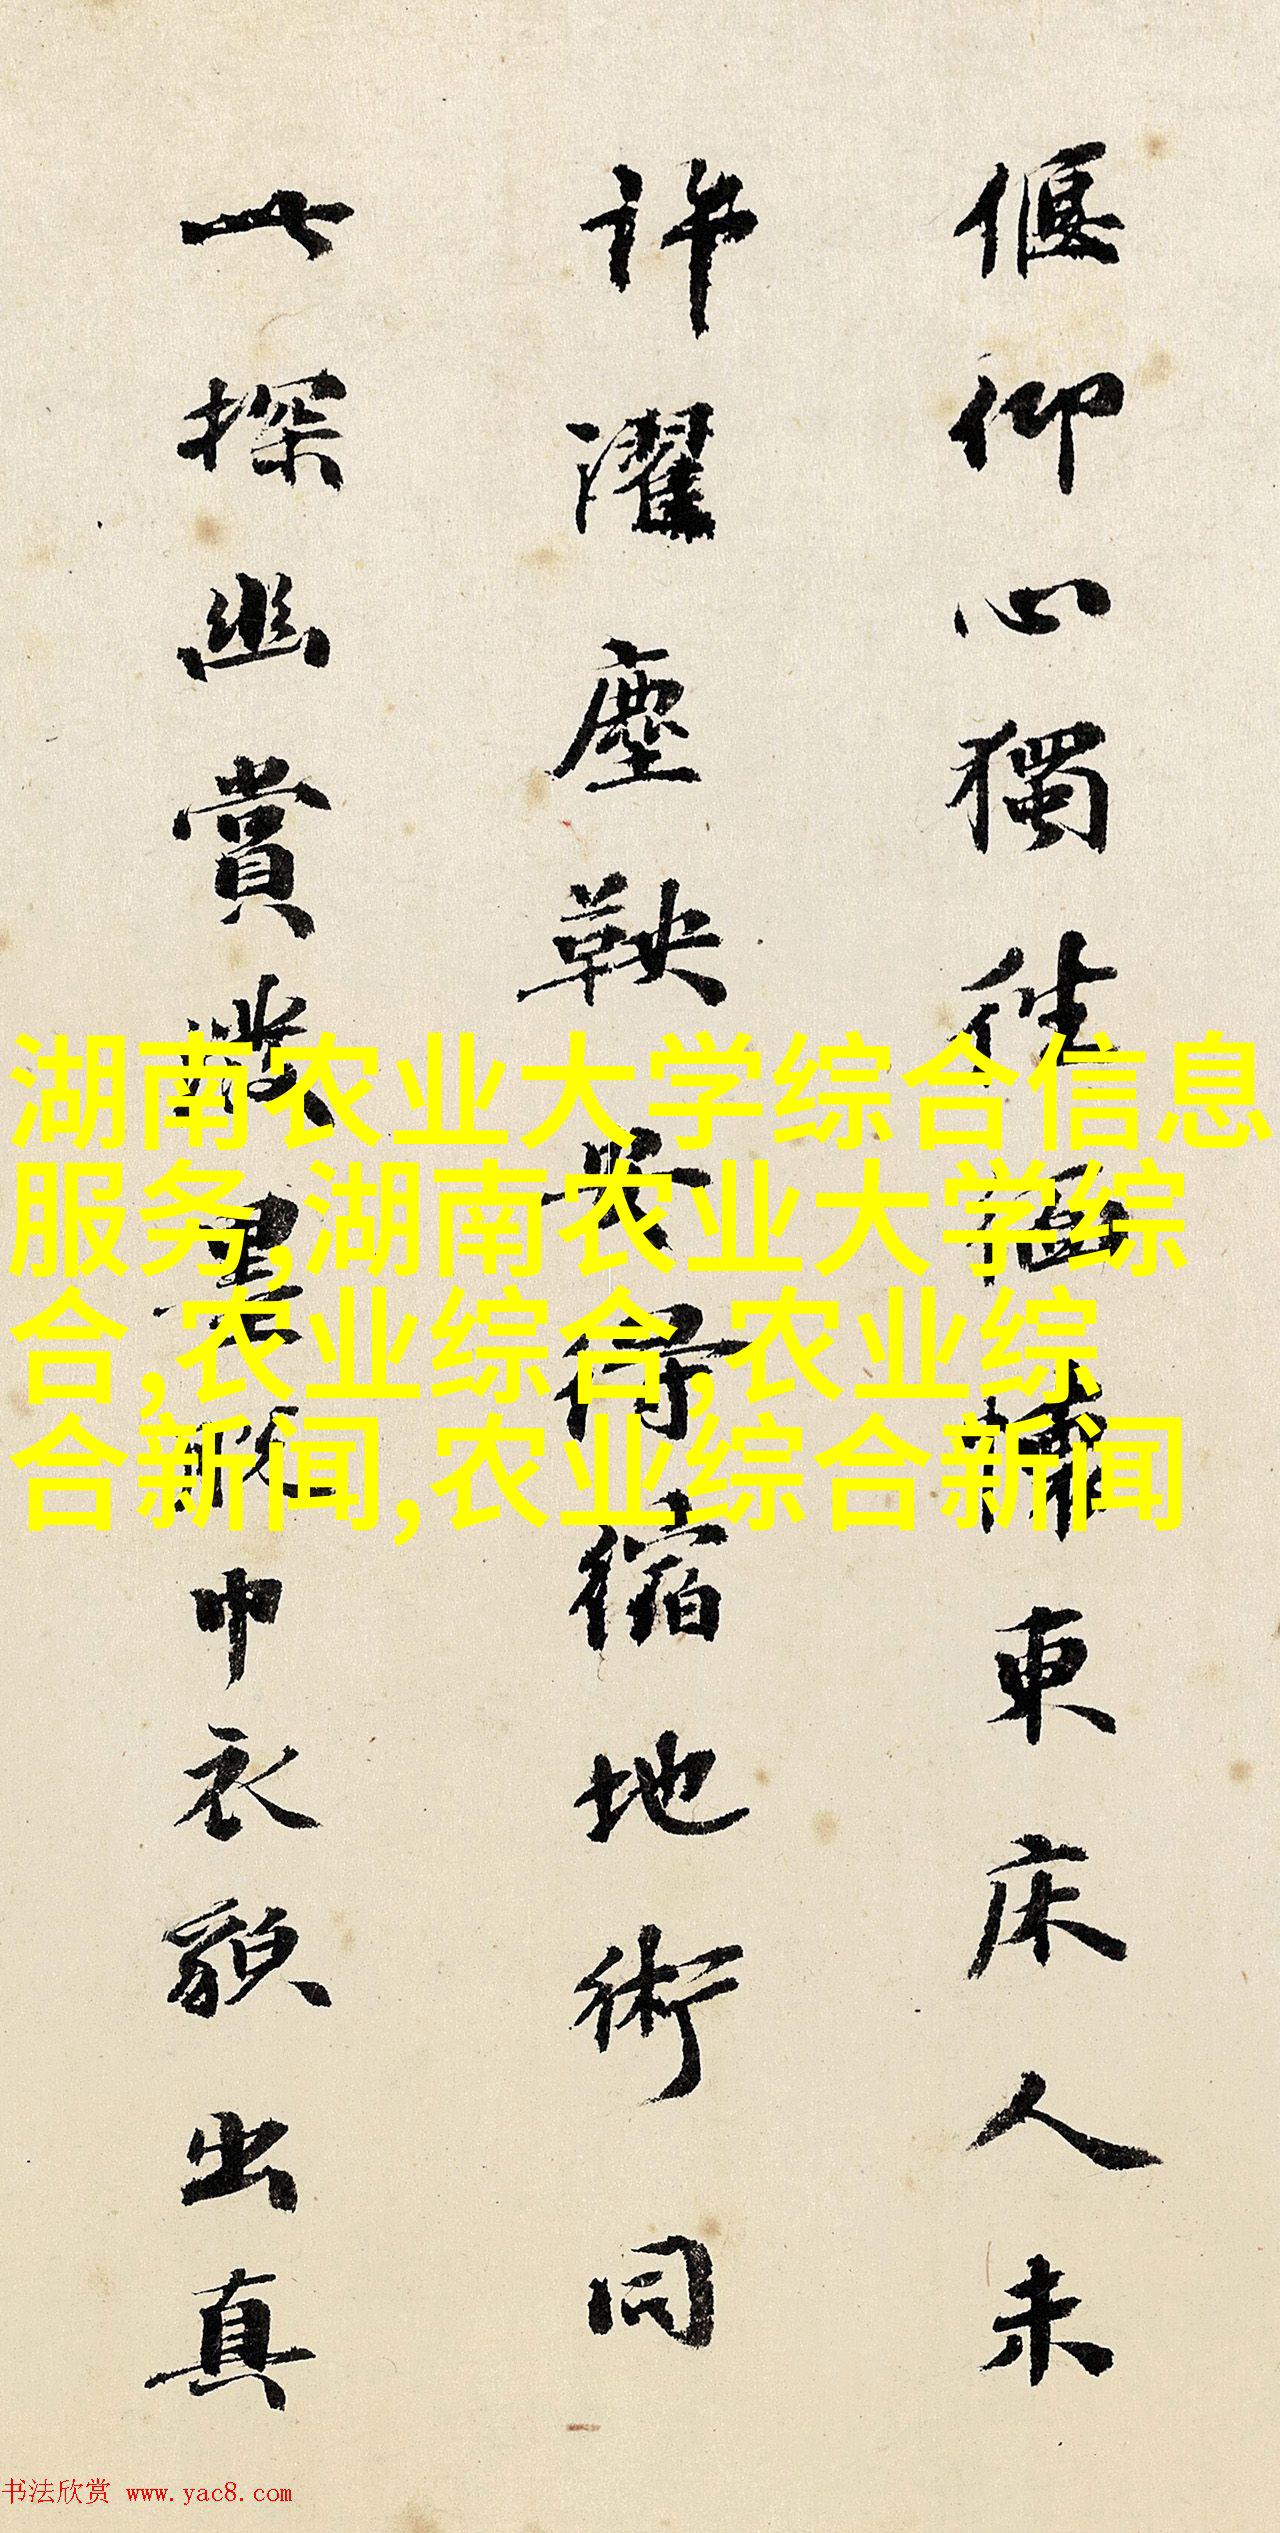 偃仰心獨往東床人未
許濯塵鞅得縮地術同
探幽賞墨巾衣貌出真
湖南农业大学综合信息
服务,湖南农业大学综
合,农业综合,农业综
合新闻,农业综合新闻
书法欣赏 www.yac8.com